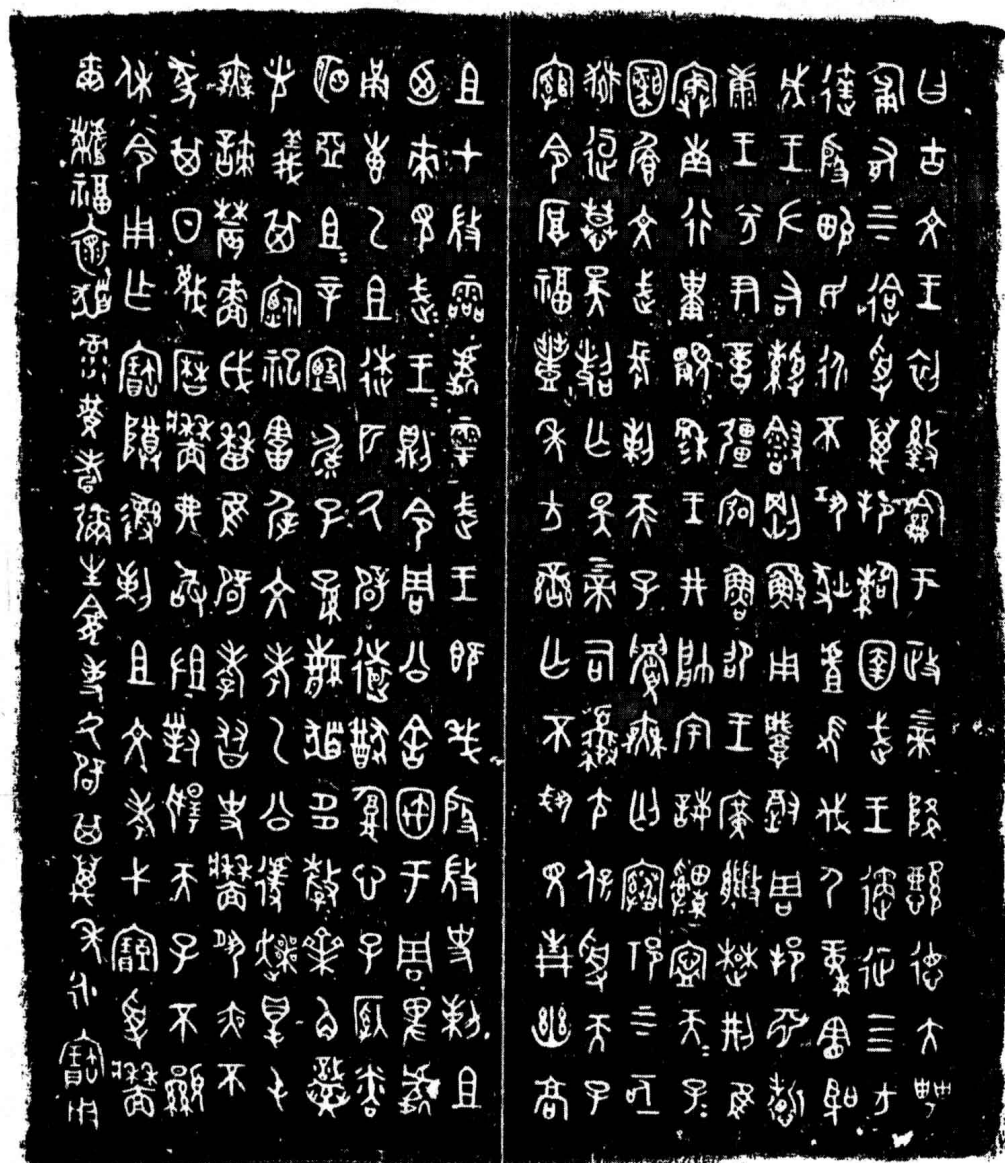 曰古文王初盩龢于政上帝降懿德大甹
匍有上下迨受萬邦䚄圉武王遹征四方
達殷畯民永不巩狄虘髟伐尸童憲聖
成王左右綬會剛鯀用肇徹周邦淵哲
康王兮尹億疆宖魯卲王廣能楚荊隹
寏南行祗覭穆王井帥宇誨申寧天子天子
恪纘文武長剌天子眉無匄䙴祁上下亟
逗慕昊照亡斁上帝司夒尢保受天子
綰令厚福豐年方蠻亡不䟆見青幽高
且才微霝處雩武王既𢦏殷微史剌且
迺來見武王武王則令周公舍㝢于周卑處
甬叀乙且逨匹氒辟遠猷腹心子𠭯粦
明亞且且辛𡪹毓子孫繁祓多孷櫅角光義
其禋祀害屖文考乙公遽爽得屯
無諫農嗇戉曆隹辟孝友史墻夙夜不
彖其日蔑曆墻弗敢沮對揚天子不顯
休令用乍寶尊彝剌且文考弋受墻
爾福褱祓彔黃耇彌生龕事氒辟其萬年永寶用